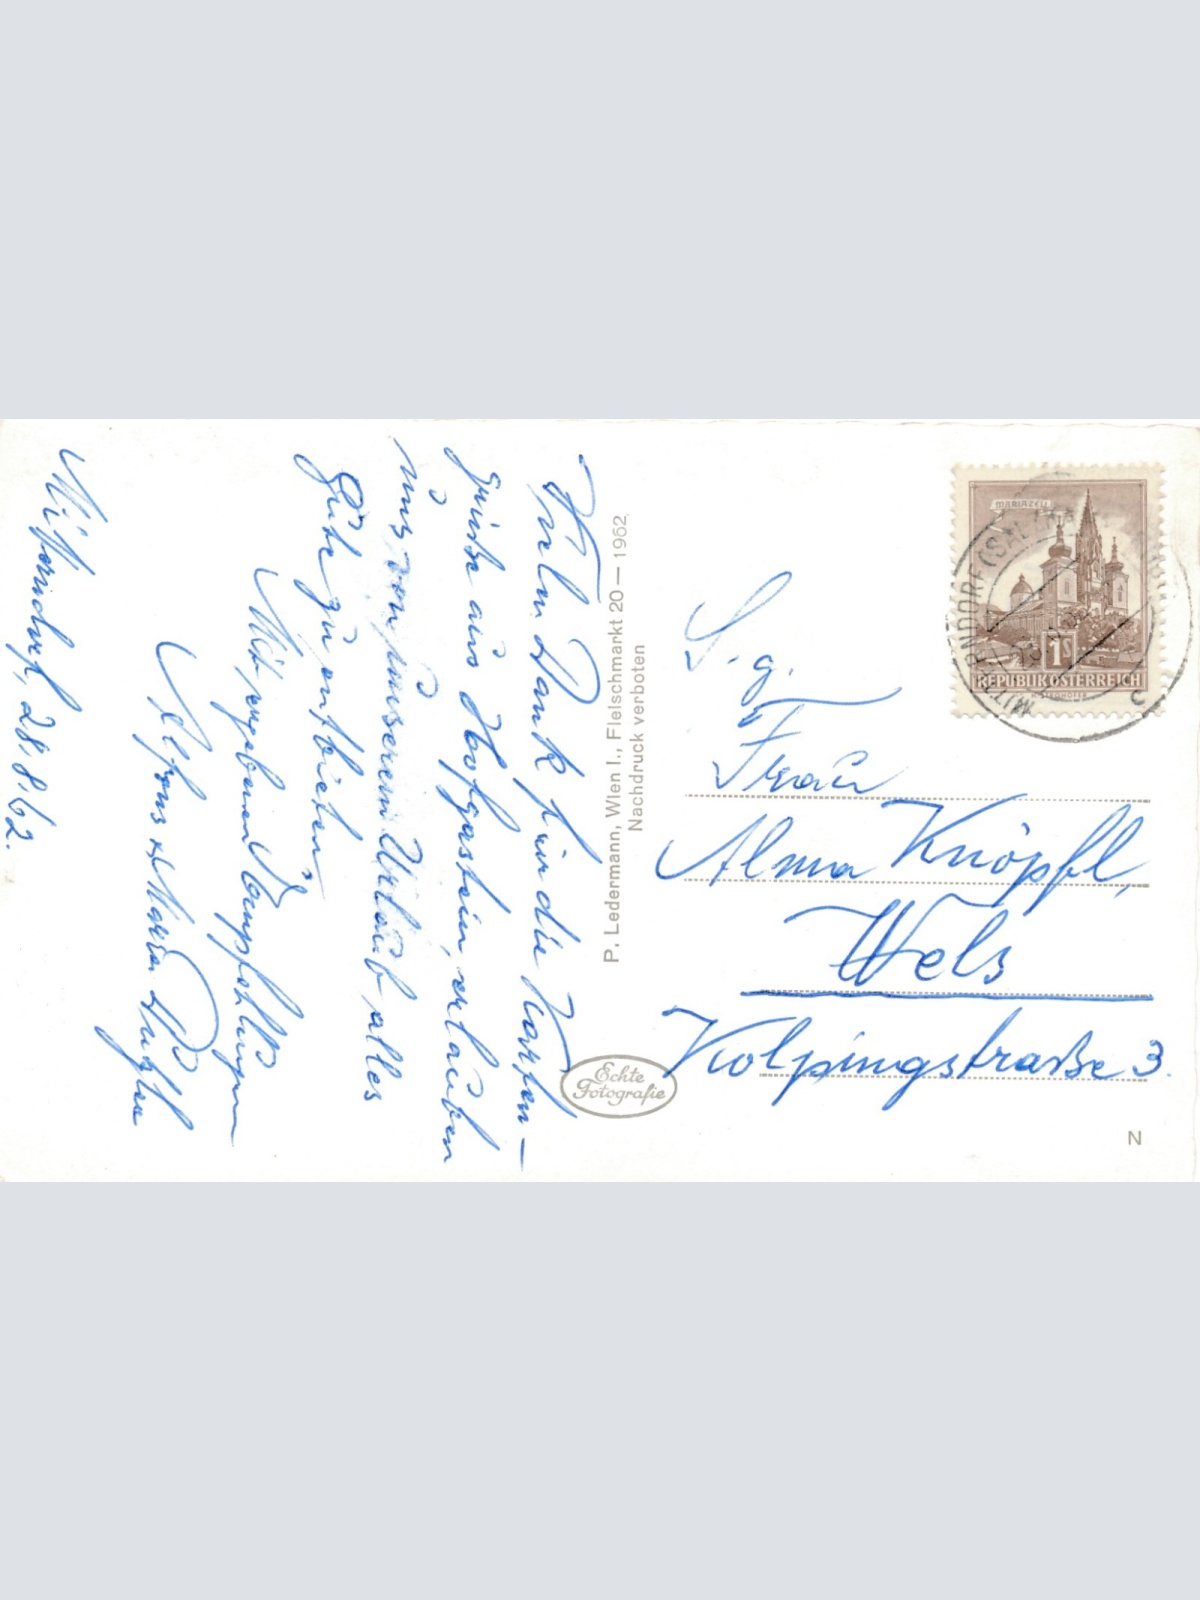 Vielen Dank für die Karten-
grüße aus Hofgastein, erlauben
uns von unserem Urlaub, alles
Gute zu entbieten,
Mit ergebenen Empfehlungen
Alfons u. Maria
Mitterndorf, 28.8.62.
P. Ledermann, Wien I., Fleischmarkt 20 — 1962
Nachdruck verboten
Echte
Fotografie
MARIAZELL
1S
REPUBLIK ÖSTERREICH
MITTERNDORF (SALZKA
S. g.
Frau
Alma Knöpfl,
Wels
Kolpingstraße 3.
N